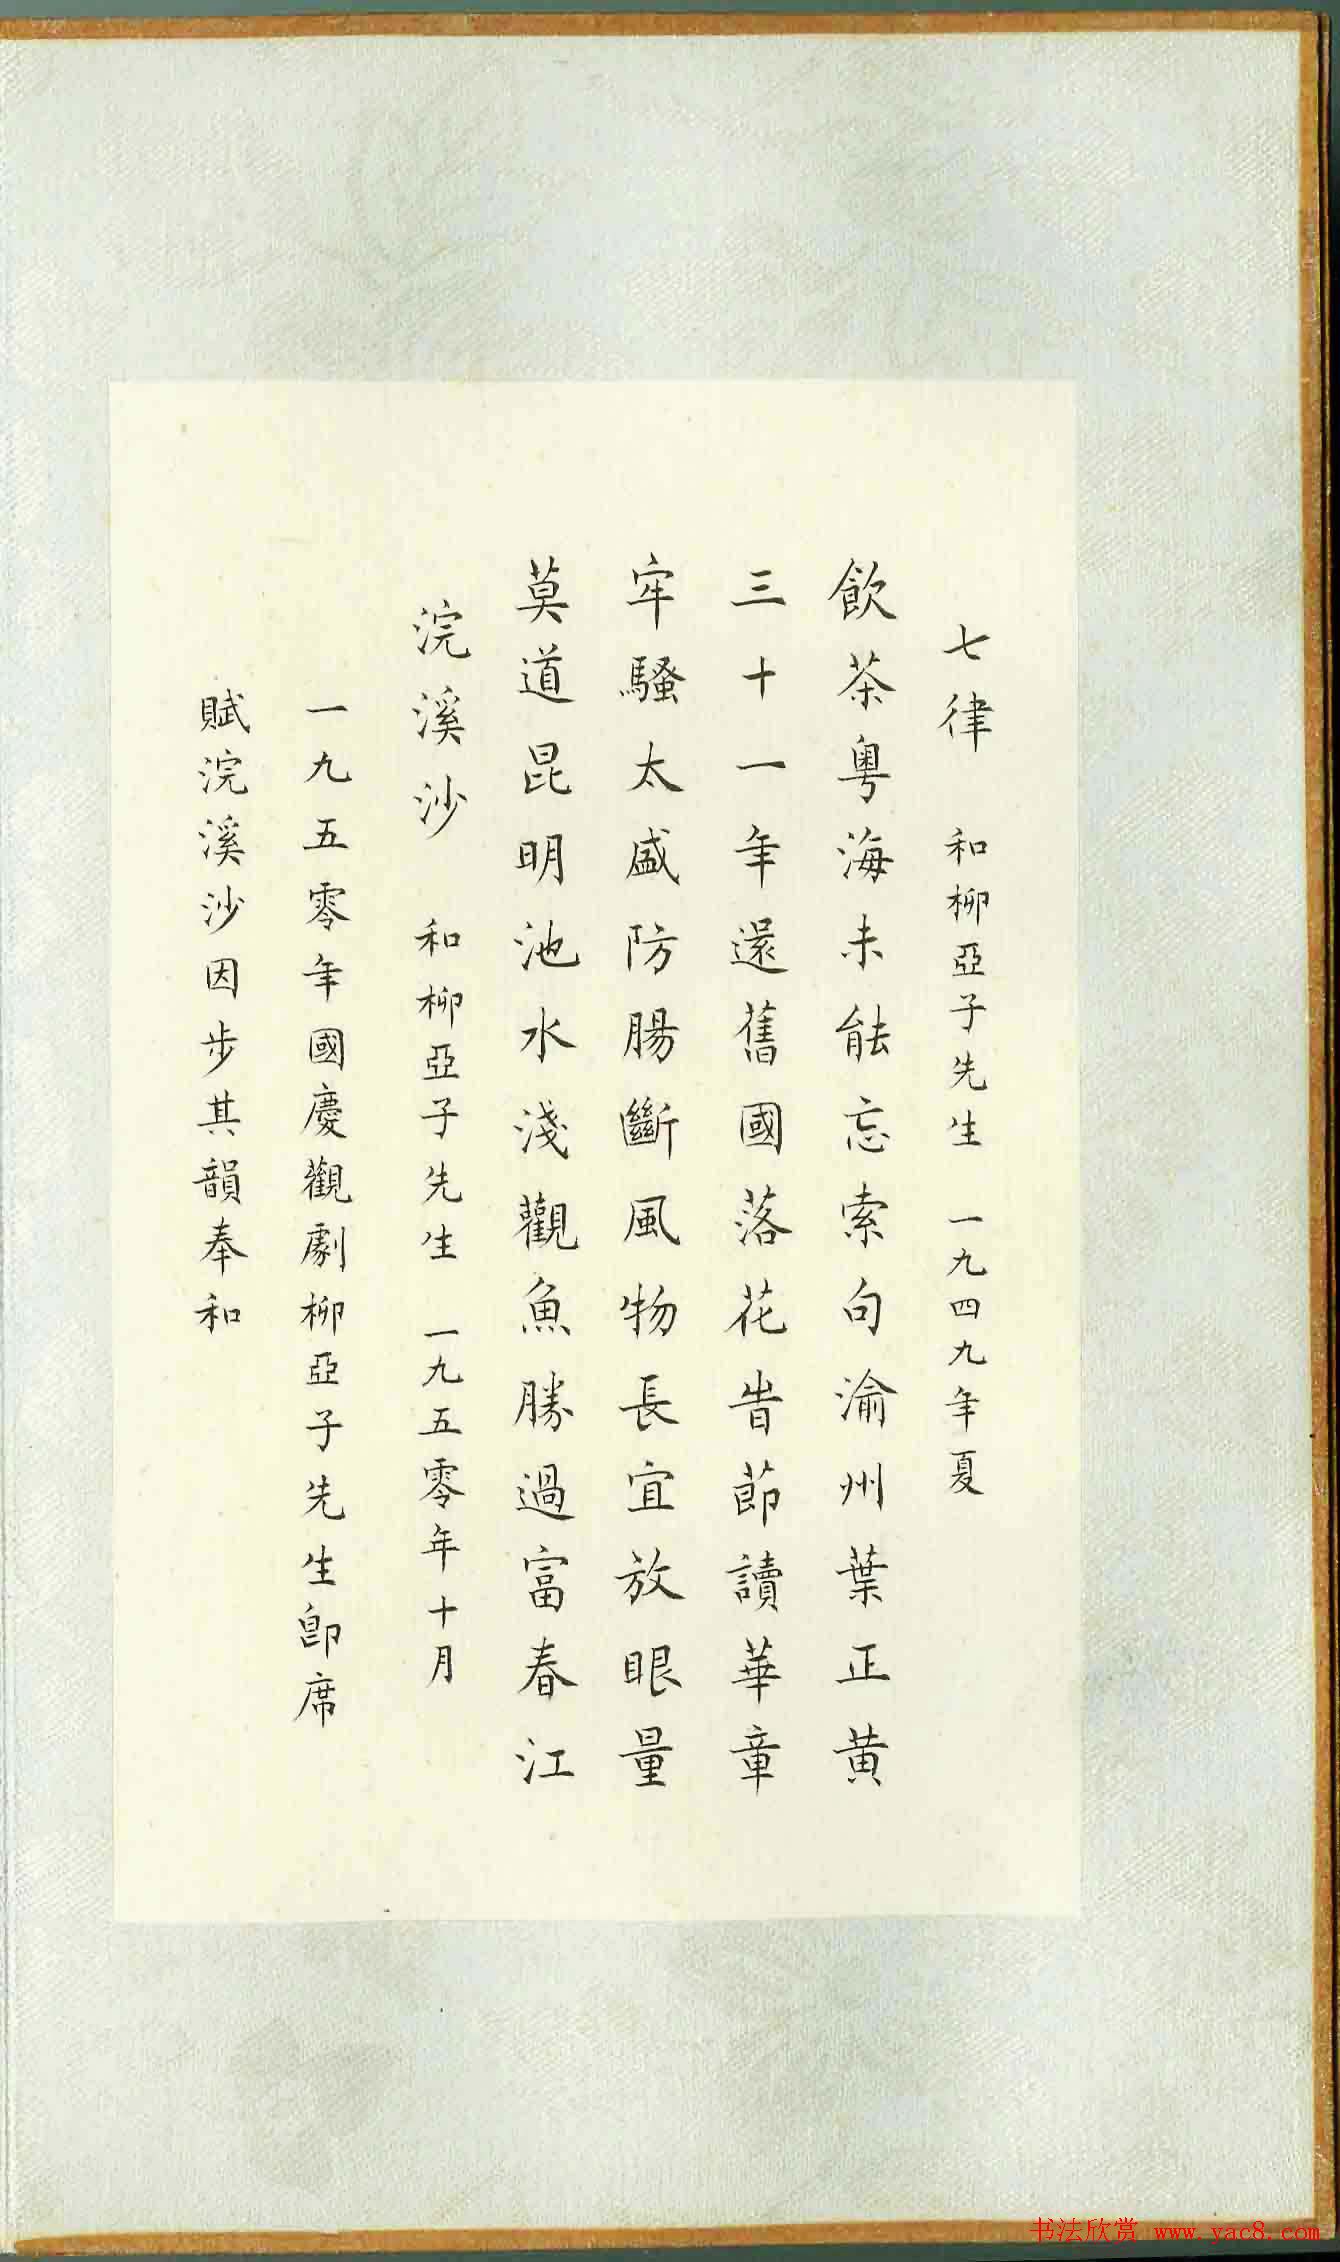 七律 和柳亞子先生 一九四九年夏
飲茶粵海未能忘索句渝州葉正黄
三十一年還舊國落花旹節讀華章
牢騷太盛防腸斷風物長宜放眼量
莫道昆明池水淺觀魚勝過富春江
浣溪沙 和柳亞子先生 一九五零年十月
一九五零年國慶觀劇柳亞子先生卽席
賦浣溪沙因步其韻奉和
书法欣赏 www.yac8.com